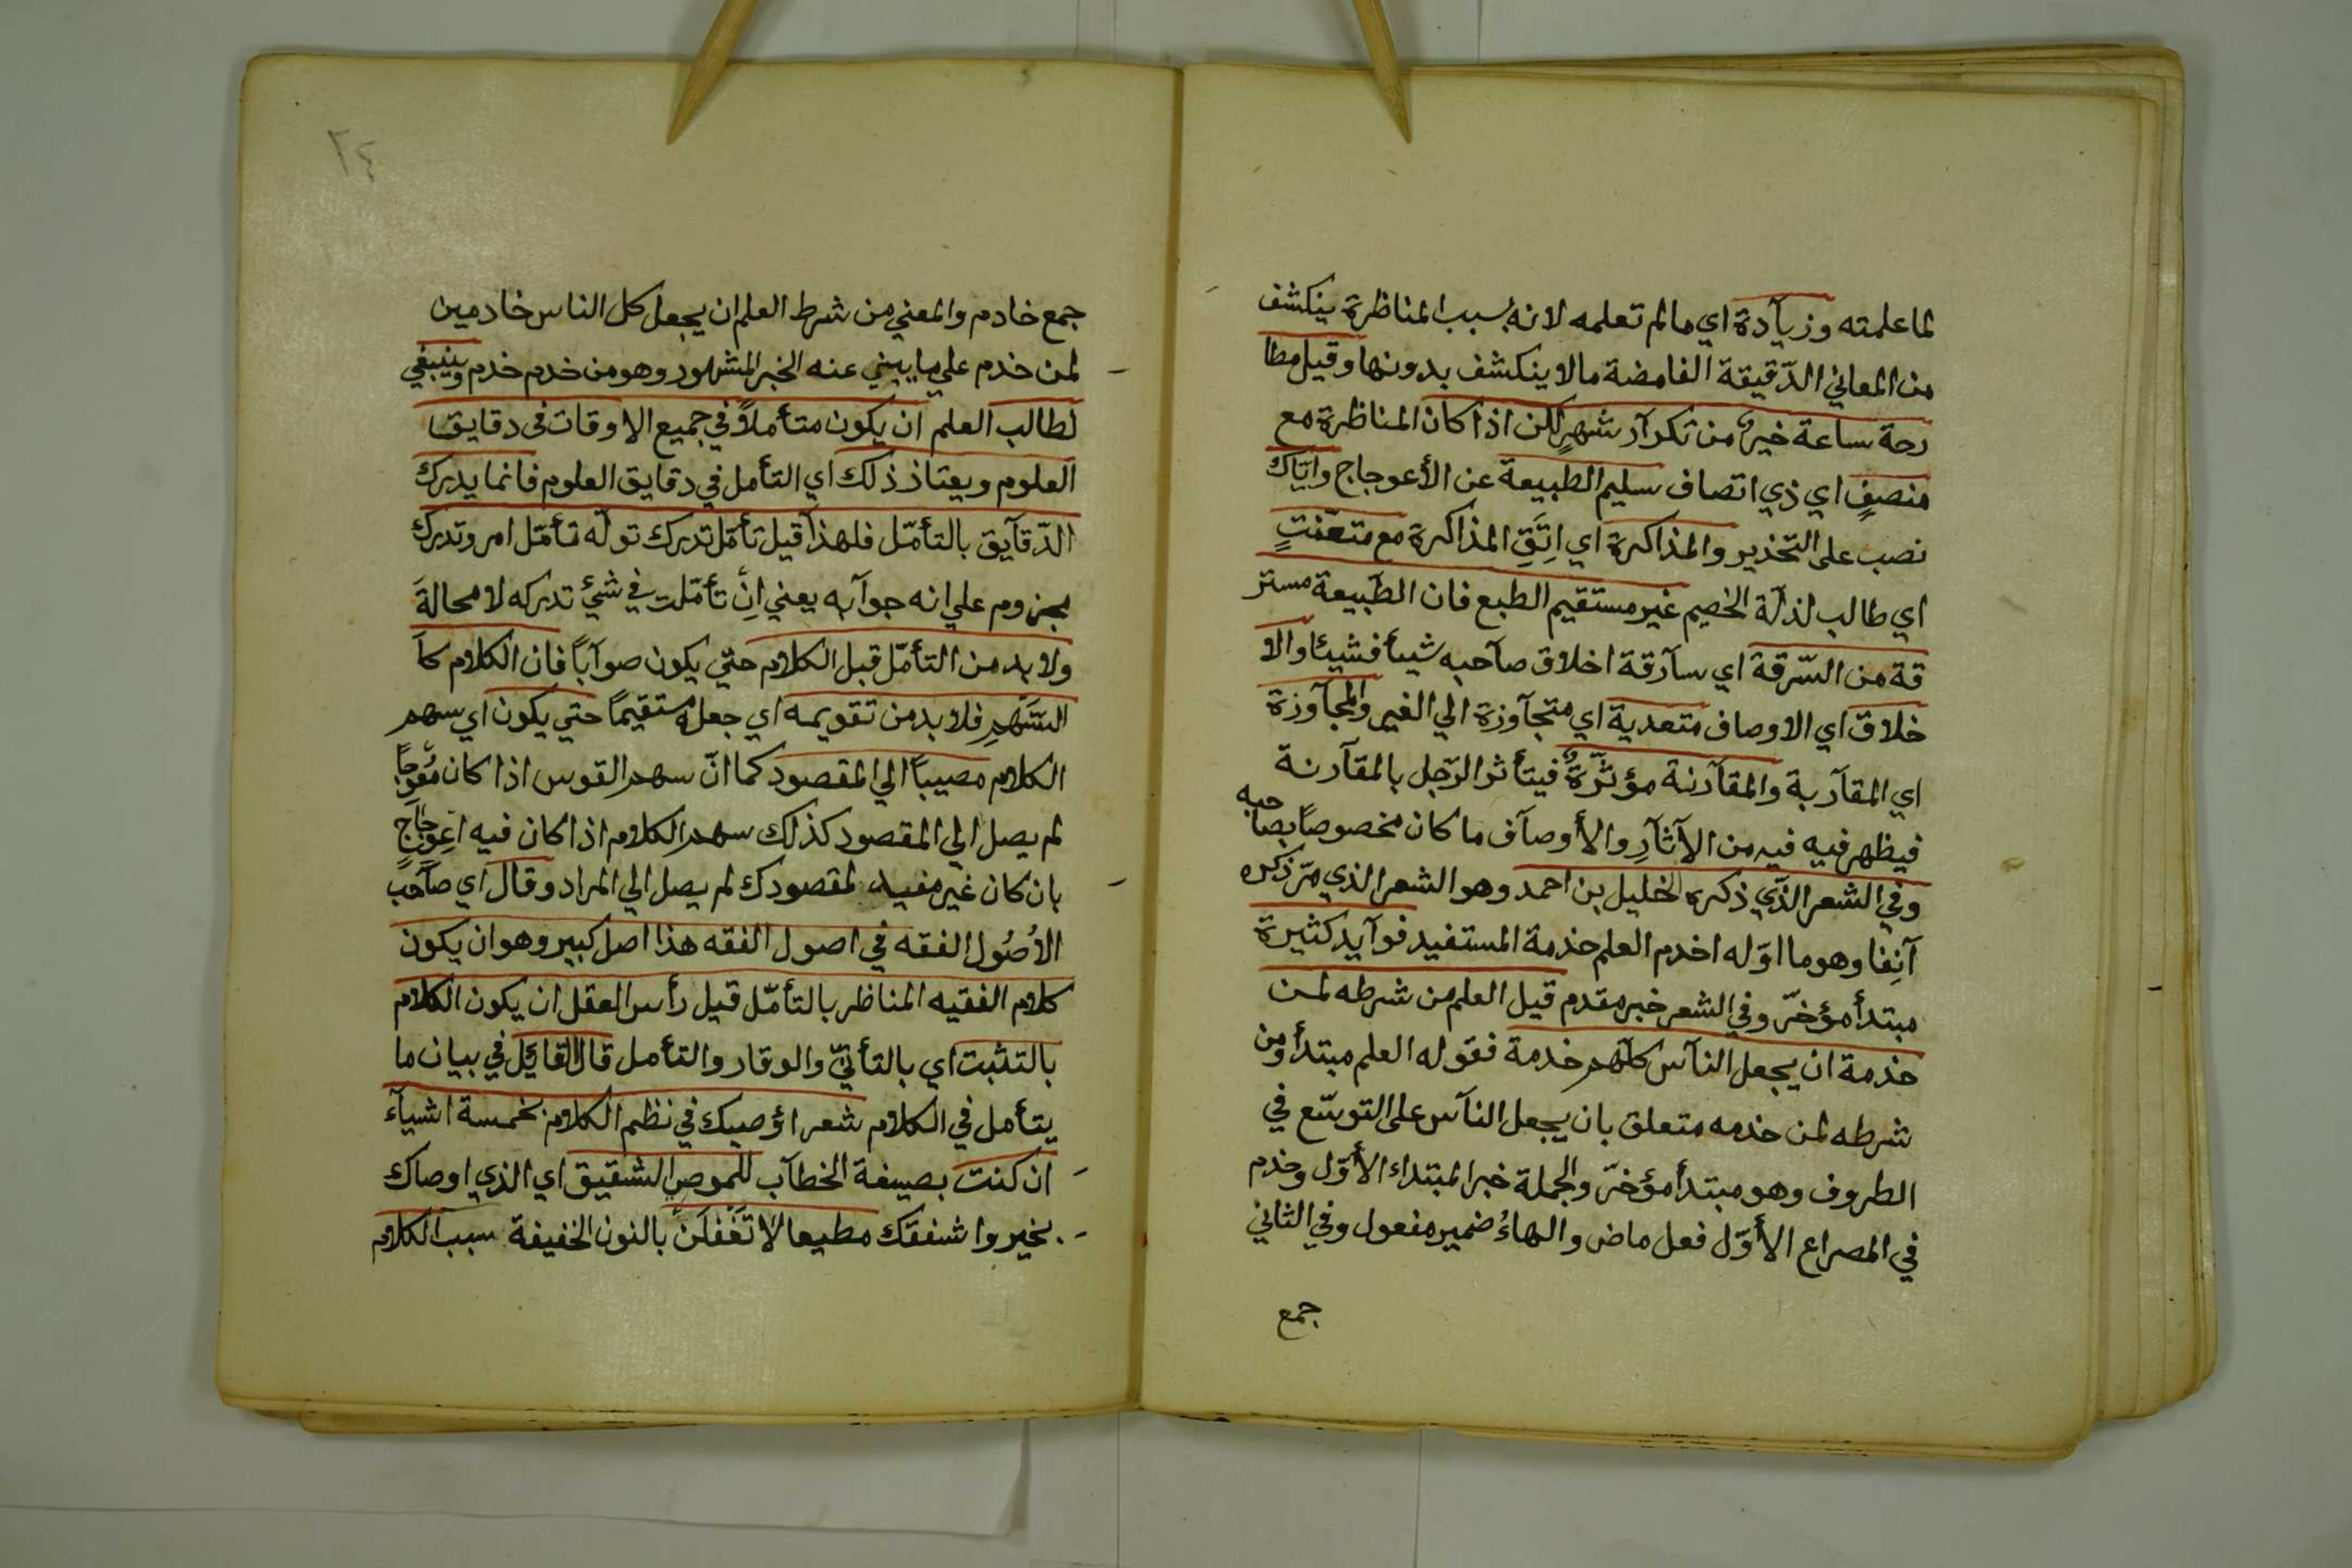 لما علمته وزيآدة اي ما لم تعلمه لانه بسبب المناظرة ينكشف
من المعاني الدّقيقة الغامضة ما لا ينكشف بدونها وقيل مطا
رحة ساعة خير من تكرآر شهرٍ لكن اذا كان المناظرة مع
منصفٍ اي ذي اتصاف سليم الطبيعة عن الأعوجاج واياك
نصب على التحذير والمذاكرة اي اِتَّقِ المذاكرة مع متعنتٍ
اي طالب لذلّة الخصيم غير مستقيم الطبع فان الطّبيعة مستر
قة من السّرقة اي سآرقة اخلاق صآحبه شيأ فشيئا والا
خلاق اي الاوصاف متعدية اي متجآوزة الي الغير والمجآوزة
اي المقآربة والمقآرنة مؤثّرةٌ فيتأثر الرّجل بالمقآرنة
فيظهر فيه فيه من الآثآرِ والأوصآف ما كان مخصوصاً بصاحبه
وفي الشعر الذّي ذكره الخليل بن احمد وهو الشعر الذي مرّ ذكره
آنِفا وهو ما اوّله اخدم العلم خدمة المستفيد فوآيد كثيرة
مبتدأ مؤخرّ وفي الشعر خبر مقدم قيل العلم من شرطه لمن
خدمة ان يجعل النآس كلّهم خدمة فقوله العلم مبتدأ ومن
شرطه لمن خدمه متعلق بان يجعل النآس على التوسّع في
الظروف وهو مبتدأ مؤخرّ والجملة خبر المبتداء الأوّل وخدم
في المصراع الأوّل فعل ماض والهاءُ ضمير مفعول وفي الثاني
جمع
٢٤
جمع خادم والمعني من شرط العلم ان يجعل كل الناس خادمين
لمن خدم علي ما يبني عنه الخبر المشهور وهو من خدم خدم وينبغي
لطالب العلم ان يكون متأملاً في جميع الاوقات في دقايق
العلوم ويعتاذ ذلك اي التأمل في دقايق العلوم فانما يدرك
الدّقآيق بالتأمّل فلهذا قيل تأمّل تدرك توله تأمّل امر وتدرك
مجزوم علي انه جوآبه يعني اِنْ تأمّلت في شيئ تدركه لا محالةَ
ولا بد من التأمّل قبل الكلام حتي يكون صوآباً فان الكلام كآ
السّهمِ فلا بد من تقويمه اي جعله مستقيماً حتي يكون اي سهم
الكلام مصيباً الي المقصود كما انّ سهم القوس اذا كان مُعوِجّاً
لم يصل الي المقصود كذلك سهم الكلام اذا كان فيه اعِوِجَاجٍ
بان كان غير مفيد لمقصودك لم يصل الي المراد وقال اي صآحب
الاُصُول الفقه في اصول الفقه هذا اصل كبير وهو ان يكون
كلام الفقيه المناظر بالتأمّل قيل رأس العقل ان يكون الكلام
بالتثبت اي بالتأنيّ والوقار والتأمل قال القايَل في بيان ما
يتأمل في الكلام شعر اؤصيك في نظم الكلام بخمسة اشيآء
ان كنت بصيغة الخطآب للموصِ الشقيق اي الذي اوصاك
بخير واشفقك مطيعا لا تَغْفَلَنْ بالنون الخفيفة سبب الكلام